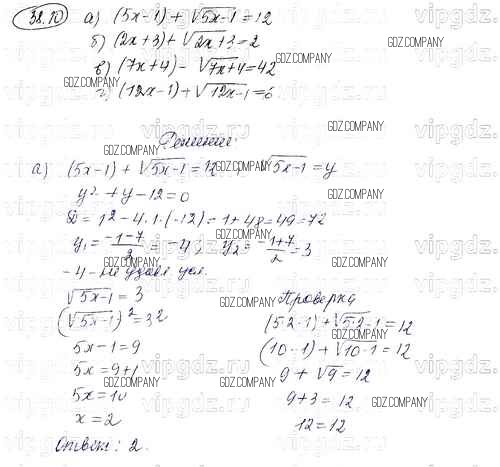 38.10 а) (5x-1) + √5x-1 = 12
б) (2x+3) + √2x+3 = 2
в) (7x+4) - √7x+4 = 42
г) (12x-1) + √12x-1 = 6
GDZ.COMPANY
Решение:
а) (5x-1) + √5x-1 = 12 √5x-1 = y
y² + y - 12 = 0
D = 1² - 4·1·(-12) = 1 + 48 = 49 = 7²
y₁ = (-1-7)/2 = -4; y₂ = (-1+7)/2 = 3
-4 - не удовл. усл.
√5x-1 = 3
(√5x-1)² = 3²
5x-1 = 9
5x = 9+1
5x = 10
x = 2
Ответ: 2.
Проверка
(5·2-1) + √5·2-1 = 12
(10-1) + √10-1 = 12
9 + √9 = 12
9+3 = 12
12 = 12
vipgdz.ru